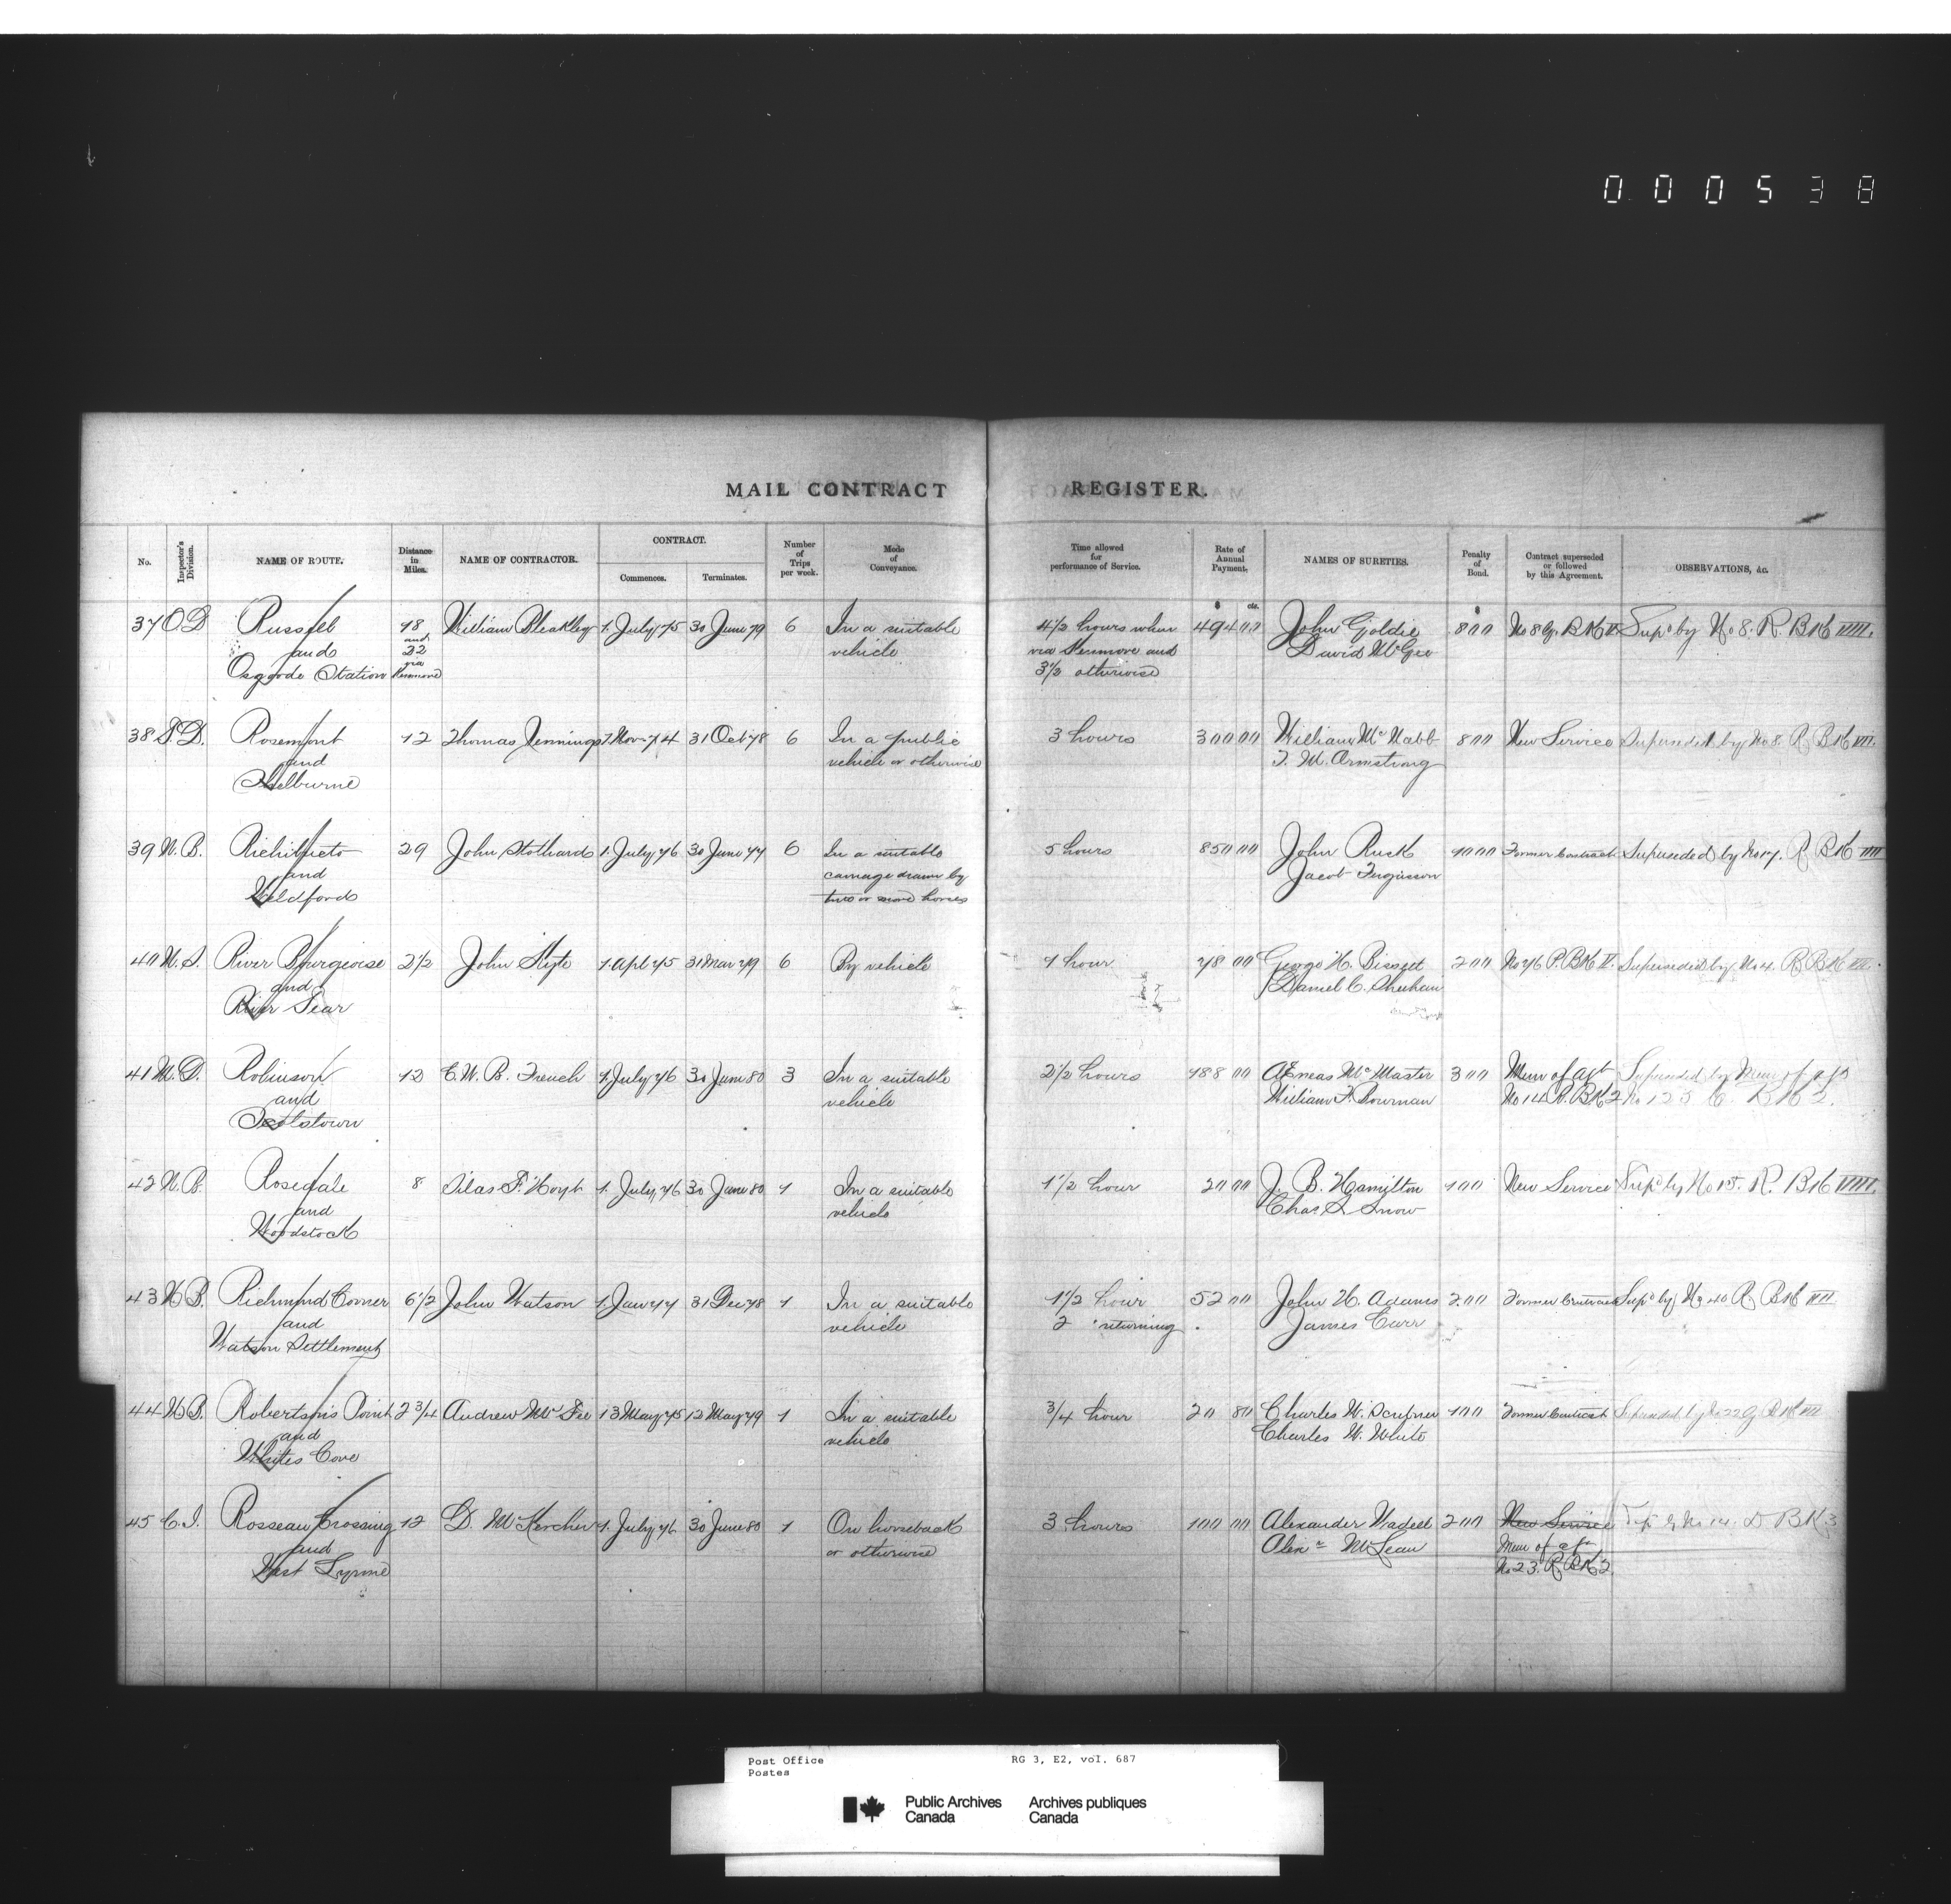 000538
MAIL CONTRACT REGISTER.
No. Inspector's Division. NAME OF ROUTE. Distance in Miles. NAME OF CONTRACTOR. CONTRACT. Commences. Terminates. Number of Trips per week. Mode of Conveyance. Time allowed for performance of Service. Rate of Annual Payment. NAMES OF SURETIES. Penalty of Bond. Contract superseded or followed by this Agreement. OBSERVATIONS, &c.
$ cts. $
37 O.D Russell 18 William Bleakley 1. July 75 30 June 79 6 In a suitable 4½ hours when 494 00 John Goldie 800 No 8 G. BK V Supd by No 8. R. BK VIII.
and and 32 vehicle via Kenmore and David McGee
Osgoode Station via Kenmore 3½ otherwise
38 S.D. Rosemont 12 Thomas Jennings 1 Nov 74 31 Oct 78 6 In a public 3 hours 300 00 William McNabb 800 New Service Superseded by No 8. R BK VII.
and vehicle or otherwise T. M. Armstrong
Shelburne
39 N.B. Richibucto 29 John Stothard 1. July 76 30 June 77 6 In a suitable 5 hours 850 00 John Rusk 1000 Former Contract Superseded by No 17. R BK
and carriage drawn by Jacob Ferguson
Weldford two or more horses
40 N.S. River Bourgeoise 2½ John Kyte 1 Apl 75 31 Mar 79 6 By vehicle 1 hour 78 00 George H. Bissett 200 No 76 P. BK V. Superseded by No 4. R BK VII.
and Daniel C. Sheehan
River Tear
41 M.D. Robinson 12 C. W. B. French 1. July 76 30 June 80 3 In a suitable 2½ hours 188 00 Æneas McMaster 300 Mem of agt Superseded by Mem of agt
and vehicle William F. Bowman No 14 R. BK 2 No 125 C. BK 2.
Scotstown
42 N.B. Rosedale 8 Silas F. Hoyt 1. July 76 30 June 80 1 In a suitable 1½ hour 20 00 J. B. Hamilton 100 New Service Supd by No 15. R. BK VIII.
and vehicle Chas S. Snow
Woodstock
43 N.B. Richmond Corner 6½ John Watson 1. Jan 77 31 Dec 78 1 In a suitable 1½ hour 52 00 John H. Adams 200 Former Contract Supd by No 40 R BK VII
and vehicle 2 " returning James Carr
Watson Settlement
44 N.B. Robertson's Point 2¾ Andrew McFee 13 May 75 12 May 79 1 In a suitable ¾ hour 20 80 Charles W. Scribner 100 Former Contract Superseded by No 22 R BK VII
and vehicle Charles W. White
Whites Cove
45 C.I. Rosseau Crossing 12 D. McKercher 1. July 76 30 June 80 1 On horseback 3 hours 100 00 Alexander Wadell 200 New Service Supd by No 14. D BK 3
and or otherwise Alexr McLean Mem of agt
West Lynne No 23. R BK 2.
Post Office RG 3, E2, vol. 687
Postes
Public Archives Archives publiques
Canada Canada